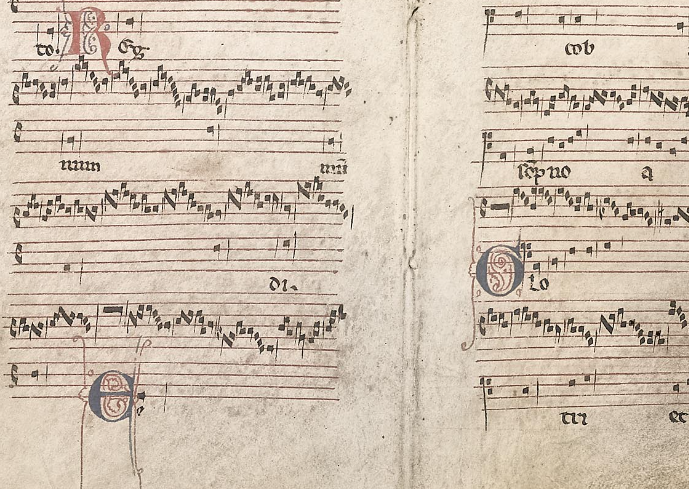 to. R Eg
num mū
di-
E
cob
sc̄pno a
G Lo
tri et